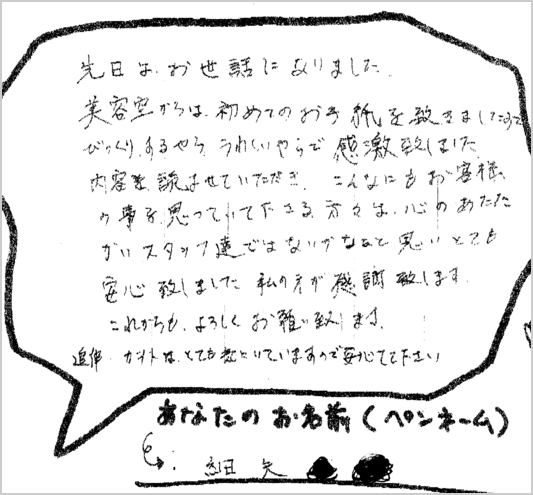 先日は、お世話になりました。
美容室からは、初めてのお手紙を致きましたので
びっくりするやら、うれしいやらで感激致しました
内容を、読ませていただき、こんなにもお客様
の事を思っていて下さる方々は、心のあたた
かいスタッフ達ではないかなあと思いとても
安心致しました 私の方が感謝致します。
これからも、よろしくお願い致します。
追伸 カットは、とても気にいっていますので安心して下さい
あなたのお名前(ペンネーム)
細矢